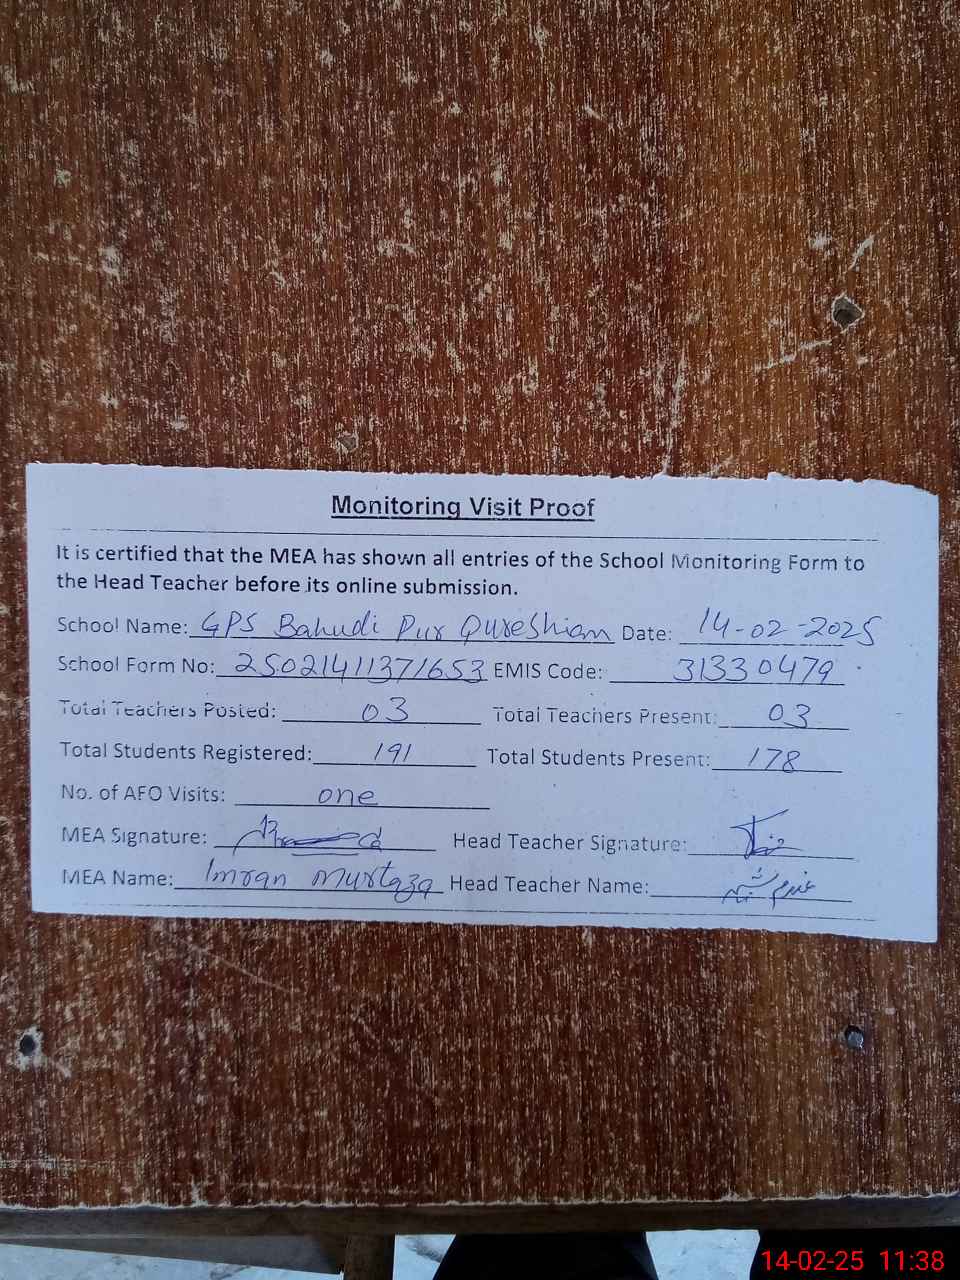 Monitoring Visit Proof
It is certified that the MEA has shown all entries of the School Monitoring Form to
the Head Teacher before its online submission.
School Name: GPS Bahudi Pur Qureshian Date: 14-02-2025
School Form No: 25021411371653 EMIS Code: 31330479
Total Teachers Posted: 03 Total Teachers Present: 03
Total Students Registered: 191 Total Students Present: 178
No. of AFO Visits: one
MEA Signature: Head Teacher Signature:
MEA Name: Imran Murtaza Head Teacher Name:
14-02-25 11:38